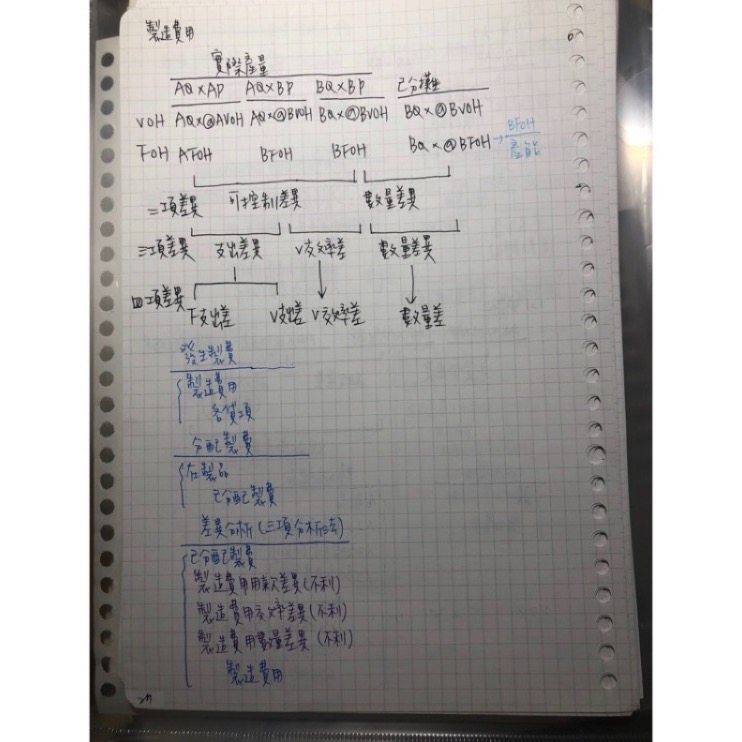 製造費用
實際產量
AQ×AP AQ×BP BQ×BP 已分攤
VOH AQ×@AVOH AQ×@BVOH BQ×@BVOH BQ×@BVOH
FOH AFOH BFOH BFOH BQ×@BFOH → BFOH
產能
二項差異 可控制差異 數量差異
三項差異 支出差異 V效率差 數量差異
四項差異 F支出差 V支出差 V效率差 數量差
發生製費
製造費用
各貸項
分配製費
在製品
已分配製費
差異分析(三項分析法)
已分配製費
製造費用用款差異(不利)
製造費用效率差異(不利)
製造費用數量差異(不利)
製造費用